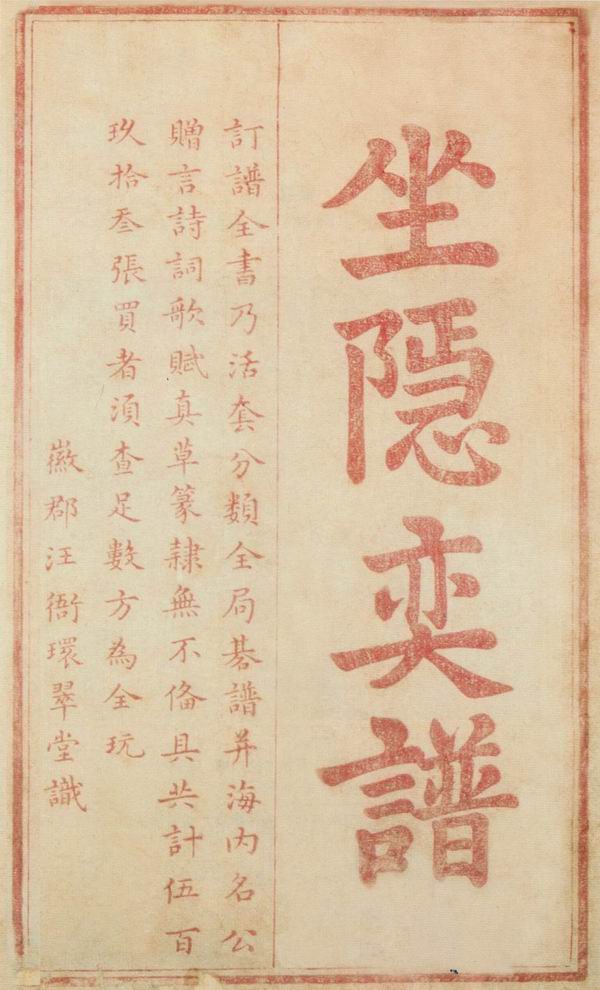 坐隱奕譜
訂譜全書乃活套分類全局碁譜并海内名公
贈言詩詞歌賦真草篆隸無不俻具共計伍百
玖拾叁張買者湏查足數方為全玩
徽郡汪衙環翠堂識